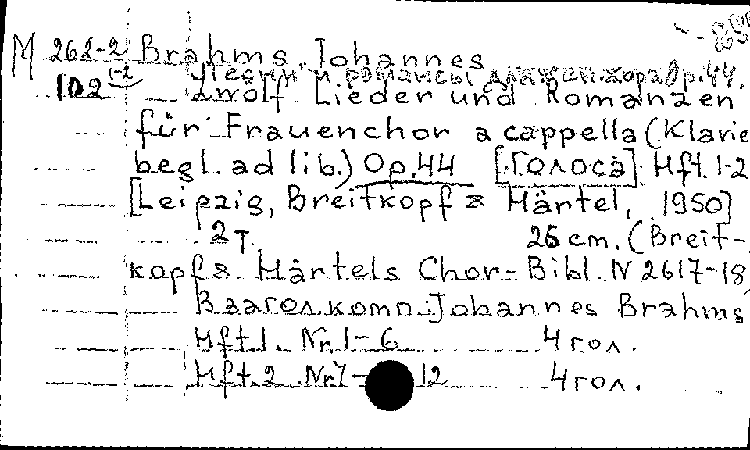 M 262-2 Brahms, Johannes
102 1-2 Песни и романсы для жен. хора Op. 44.
Zwölf Lieder und Romanzen
für Frauenchor a cappella (Klavie
begl. ad lib.) Op. 44 [Голоса] Hft. 1-2
[Leipzig, Breitkopf & Härtel, 1950]
2 т. 26 cm. (Breit-
kopf & Härtels Chor-Bibl. N 2617-18
В загол. комп.: Johannes Brahms
Hft. 1. Nr. 1-6 4 гол.
Hft. 2. Nr. 7-12 4 гол.